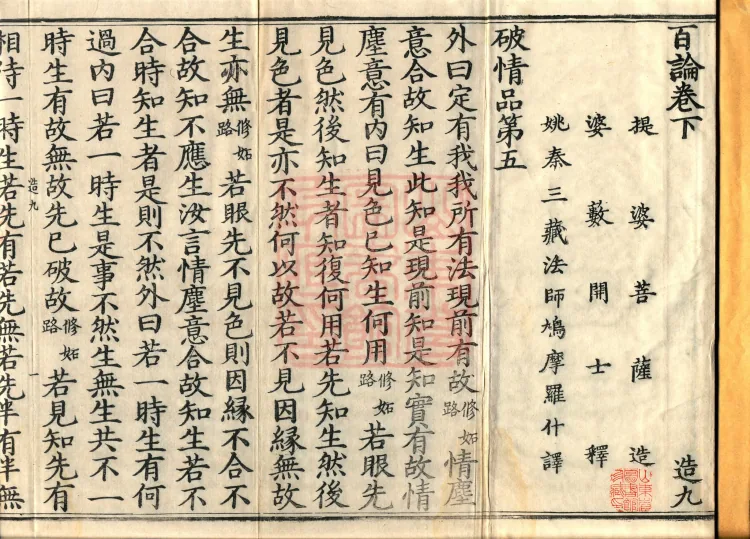 百論卷下 造九
提婆菩薩造
婆藪開士釋
姚秦三藏法師鳩摩羅什譯
破情品第五
外曰定有我我所有法現前有故修妬路情塵
意合故知生此知是現前知是知實有故情
塵意有内曰見色已知生何用修妬路若眼先
見色然後知生者知復何用若先知生然後
見色者是亦不然何以故若不見因緣無故
生亦無修妬路若眼先不見色則因緣不合不
合故知不應生汝言情塵意合故知生若不
合時知生者是則不然外曰若一時生有何
過内曰若一時生是事不然生無生共不一
時生有故無故先已破故修妬路若見知先有
造九 一
相待一時生若先有若先無若先半有半無